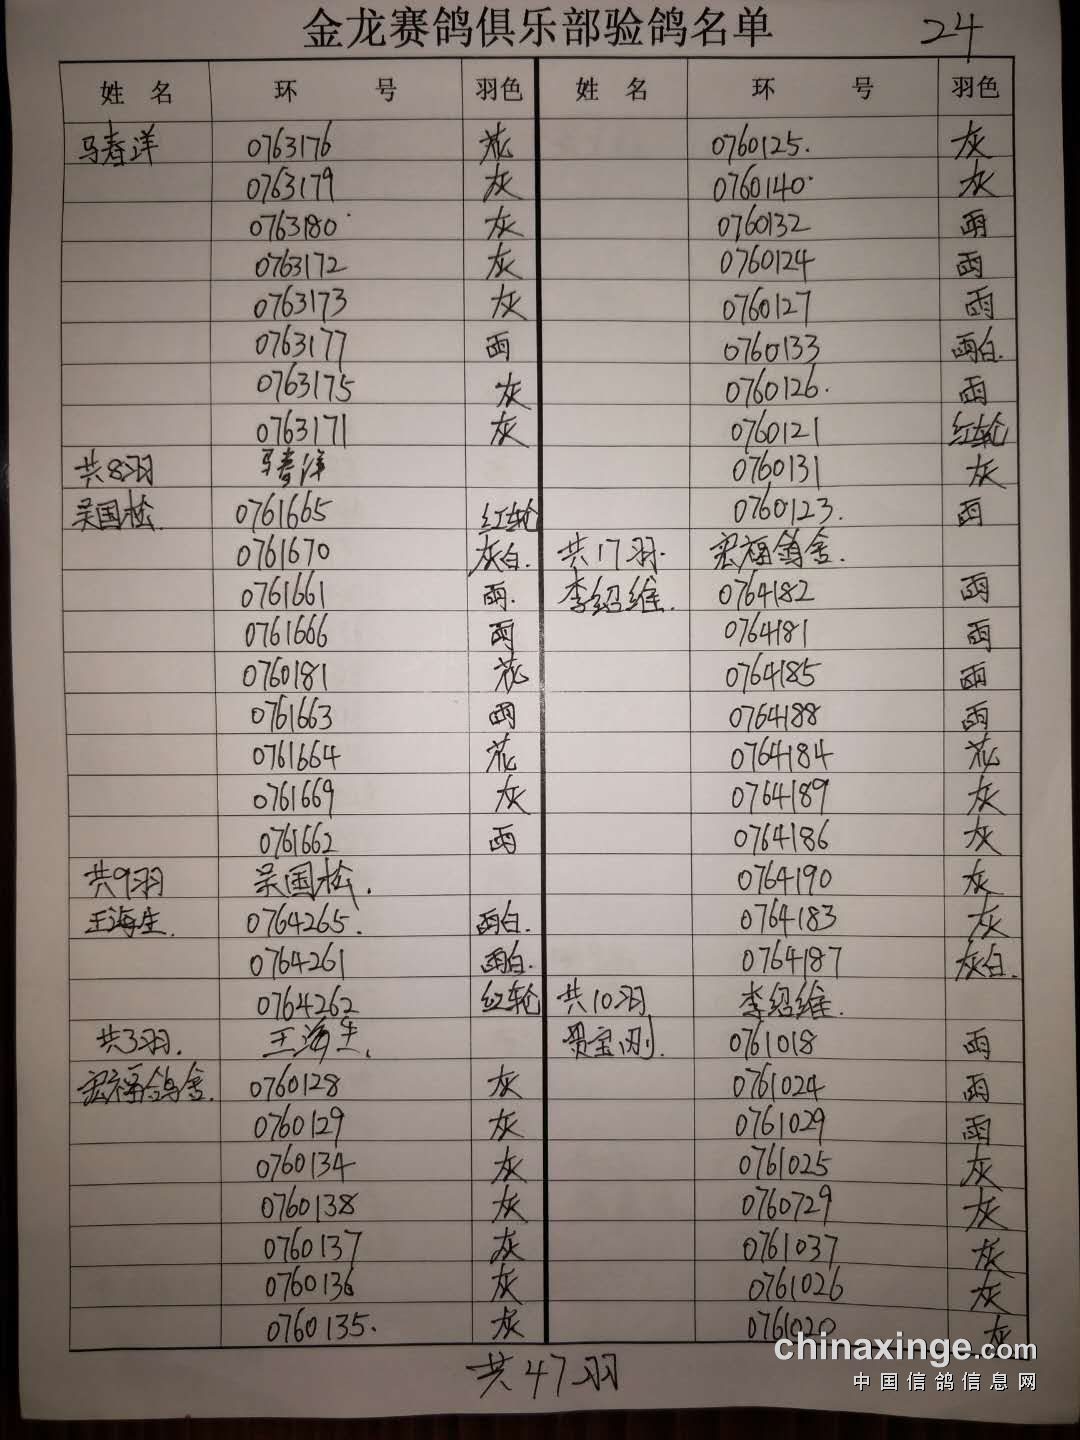 金龙赛鸽俱乐部验鸽名单 24
姓 名 环 号 羽色
马春洋 0763176 花
0763179 灰
0763180 灰
0763172 灰
0763173 灰
0763177 雨
0763175 灰
0763171 灰
共8羽 马春洋
吴国松. 0761665 红轮
0761670 灰白.
0761661 雨.
0761666 雨
0760181 花
0761663 雨
0761664 花
0761669 灰
0761662 雨
共9羽 吴国松.
王海生. 0764265. 雨白.
0764261 雨白.
0764262 红轮
共3羽. 王海生.
宏福鸽舍. 0760128 灰
0760129 灰
0760134 灰
0760138 灰
0760137 灰
0760136 灰
0760135. 灰
姓 名 环 号 羽色
0760125. 灰
0760140 灰
0760132 雨
0760124 雨
0760127 雨
0760133 雨白.
0760126. 雨
0760121 红轮
0760131 灰
0760123. 雨
共17羽. 宏福鸽舍.
李绍维. 0764182 雨
0764181 雨
0764185 雨
0764188 雨
0764184 花
0764189 灰
0764186 灰
0764190 灰
0764183 灰
0764187 灰白.
共10羽 李绍维.
贾宝刚. 0761018 雨
0761024 雨
0761029 雨
0761025 灰
0760729 灰
0761037 灰
0761026 灰
0761020 灰
共47羽
chinaxinge.com
中国信鸽信息网